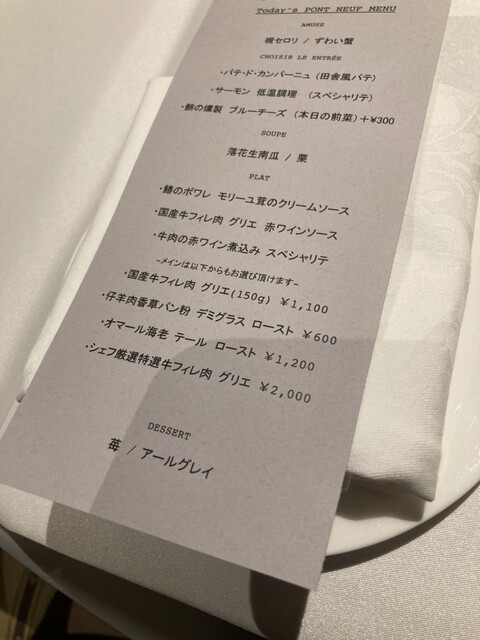 Today's PONT NEUF MENU
AMUSE
根セロリ / ずわい蟹
CHOISIR LE ENTRÉE
・パテ・ド・カンパーニュ (田舎風パテ)
・サーモン 低温調理 (スペシャリテ)
・鮪の燻製 ブルーチーズ (本日の前菜)＋¥300
SOUPE
落花生南瓜 / 栗
PLAT
・鰆のポワレ モリーユ茸のクリームソース
・国産牛フィレ肉 グリエ 赤ワインソース
・牛肉の赤ワイン煮込み スペシャリテ
~メインは以下からもお選び頂けます~
・国産牛フィレ肉 グリエ(150g) ¥1,100
・仔羊肉香草パン粉 デミグラス ロースト ¥600
・オマール海老 テール ロースト ¥1,200
・シェフ厳選特選牛フィレ肉 グリエ ¥2,000
DESSERT
苺 / アールグレイ